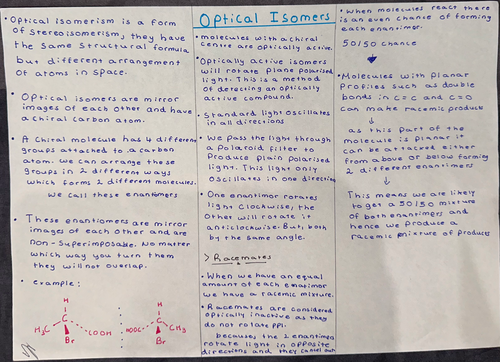 • Optical isomerism is a form
of stereoisomerism, they have
the same structural formula
but different arrangement
of atoms in space.
• Optical isomers are mirror
images of each other and have
a chiral carbon atom.
• A Chiral molecule has 4 different
groups attached to a carbon
atom. We can arrange these
groups in 2 different ways
which forms 2 different molecules.
We call these enantiomers
• These enantiomers are mirror
images of each other and are
non-superimposable. No matter
which way you turn them
they will not overlap.
• example:
H
C
H3C
COOH
Br
H
C
HOOC
CH3
Br
Optical Isomers
• molecules with a chiral
centre are optically active.
• Optically active isomers
will rotate plane polarised
light. This is a method
of detecting an optically
active compound.
• Standard light oscillates
in all directions
• We pass the light through
a Polaroid filter to
Produce plain polarised
light. This light only
oscillates in one direction
• One enantiomer rotates
light clockwise, the
other will rotate it
anticlockwise. But, both
by the same angle.
> Racemates
• When we have an equal
amount of each
we have a racemic mixture.
• Racemates are considered
optically inactive as they
do not rotate PPl.
because, the 2 enantiomers
rotate light in opposite
directions and they cancel out
• When molecules react there
is an even chance of forming
each enantiomer.
50/50 chance
• Molecules with planar
Profiles such as double
bonds in C=C and C=O
can make racemic products
as this part of the
molecule is planar it
can be attacked either
from above or below forming
2 different enantiomers
This means we are likely
to get a 50/50 mixture
of both enantiomers and
hence we produce a
racemic mixture of products